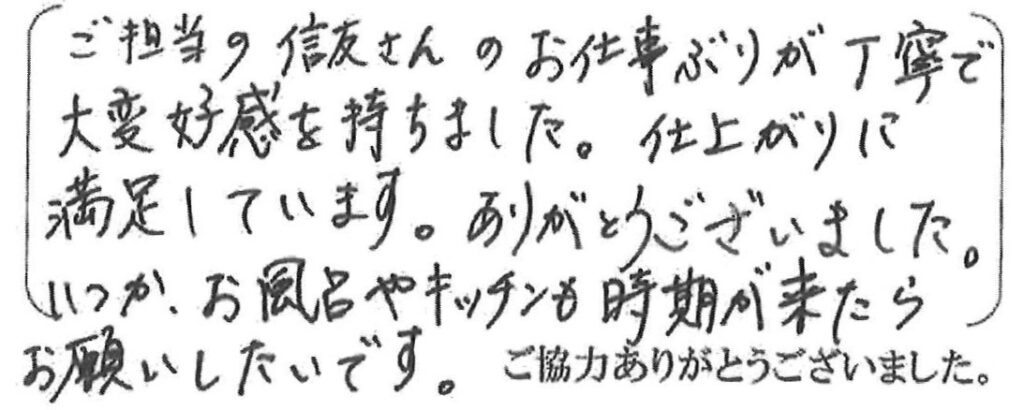 ご担当の信友さんのお仕事ぶりが丁寧で
大変好感を持ちました。仕上がりに
満足しています。ありがとうございました。
いつか、お風呂やキッチンも時期が来たら
お願いしたいです。
ご協力ありがとうございました。